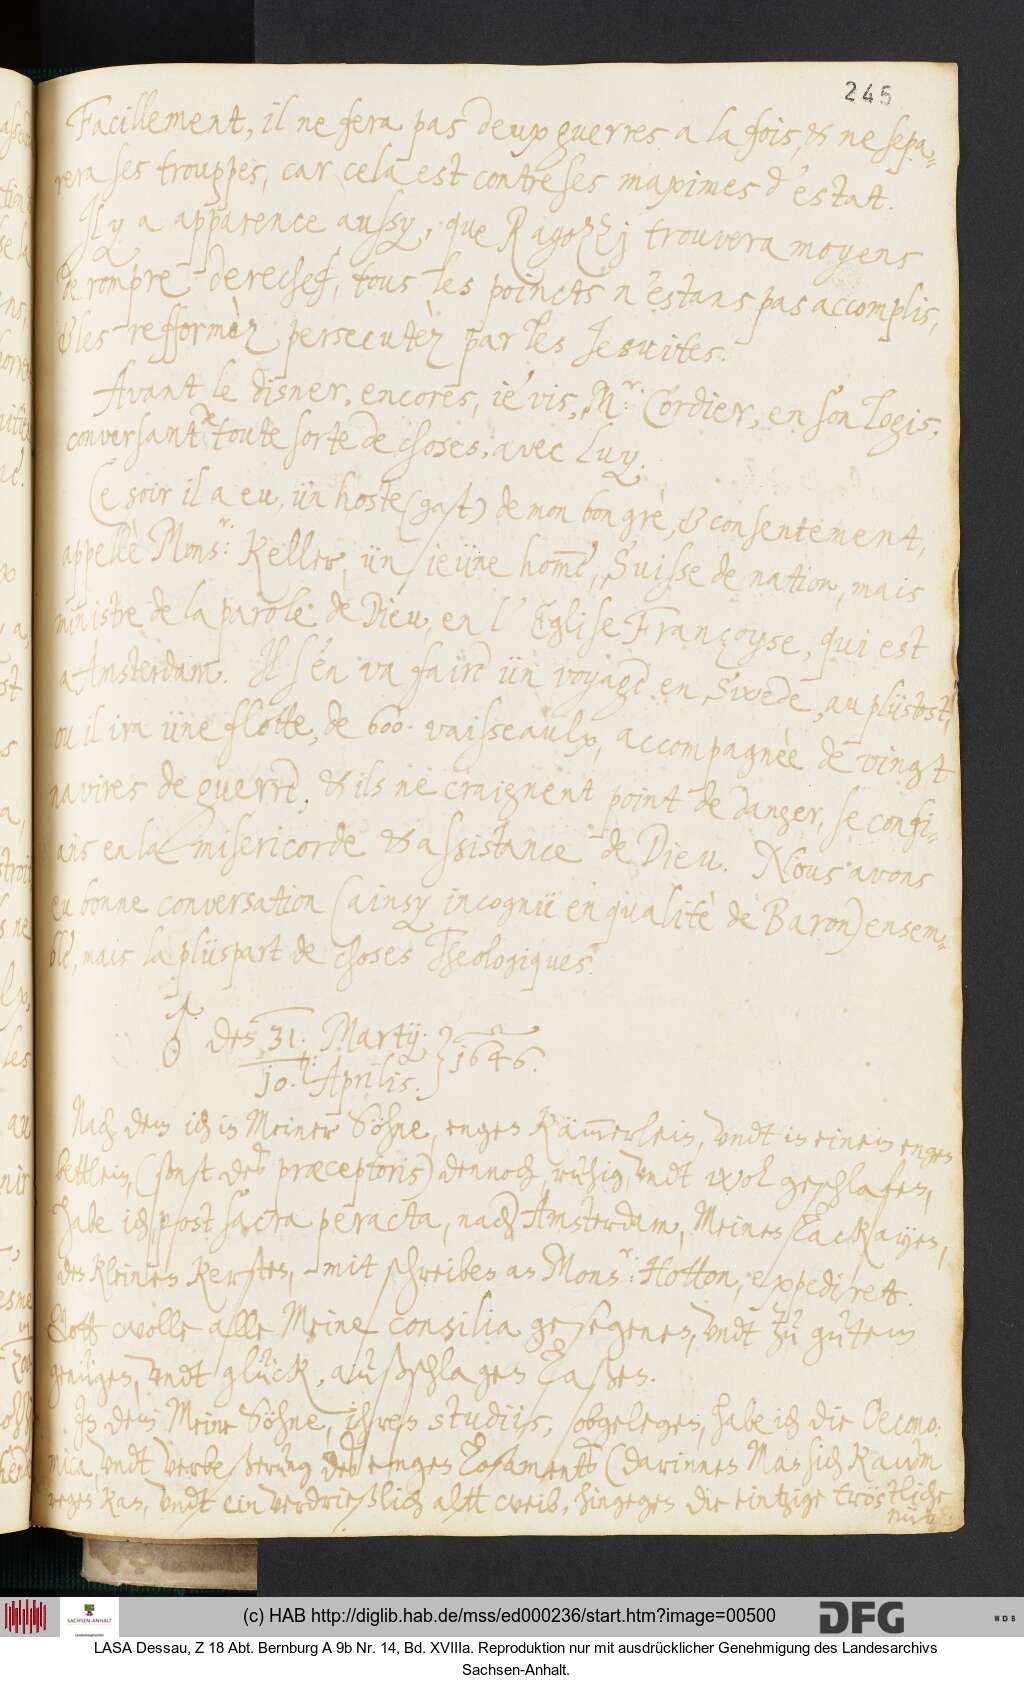 245
Facillement, il ne fera pas deux guerres a la fois, & ne sepa-
rera ses trouppes, car cela est contre ses maximes d'estat.
Il y a apparence aussy, que Ragozzj trouvera moyens
de rompre derechef, tous les poincts n'estans pas accomplis,
& les refformèz persecutèz par les Jesuites.
Avant le disner, encores, ie vis, Mr: Cordier, en son logis,
conversant de toute sorte de choses, avec luy.
Ce soir il a eu, ün hoste (gast) de mon bon grè, & consentement,
appellè Monsr: Keller, ün jeüne home, Suisse de nation, mais
ministre de la parole de Dieu, en l'Eglise Françoyse, qui est
a Amsterdam. Il s'en va faire ün voyage en Swede, au plüstost,
ou il ira üne flotte, de 600. vaisseaulx, accompagnèe de vingt
navires de guerre, & ils ne craignent point de danger, se confi-
ans en la misericorde & assistance de Dieu. Nous avons
eu bonne conversation (ainsy incognü en qualitè de Baron) ensem-
ble, mais la plüspart de choses Theologiques.
♂ des 31. Martij.
10. Aprilis. } 1646.
Nach dem ich in Meiner Söhne, engen Kämmerlein, undt in einem engen
bettlein, (sonst des præceptoris) dennoch, ruhig, undt wol geschlafen,
habe ich, post sacra peracta, nach Amsterdam, Meinen Lackayen,
den kleinen Kersten, mit schreiben an Monsr: Hotton, expedirett.
Gott wolle alle Meine consilia gesegenen, undt zu gutem
genügen, undt glück, außschlagen laßen.
In dem Meine Söhne, ihren studiis, obgelegen, habe ich die Oecono-
mica, undt verbeßerung des engen Losaments (darinnen Man sich kaum
regen kan, undt ein verdrießlich altt weib, hingegen die eintzige tröstliche
(c) HAB http://diglib.hab.de/mss/ed000236/start.htm?image=00500
SACHSEN-ANHALT
DFG
WDB
LASA Dessau, Z 18 Abt. Bernburg A 9b Nr. 14, Bd. XVIIIa. Reproduktion nur mit ausdrücklicher Genehmigung des Landesarchivs
Sachsen-Anhalt.